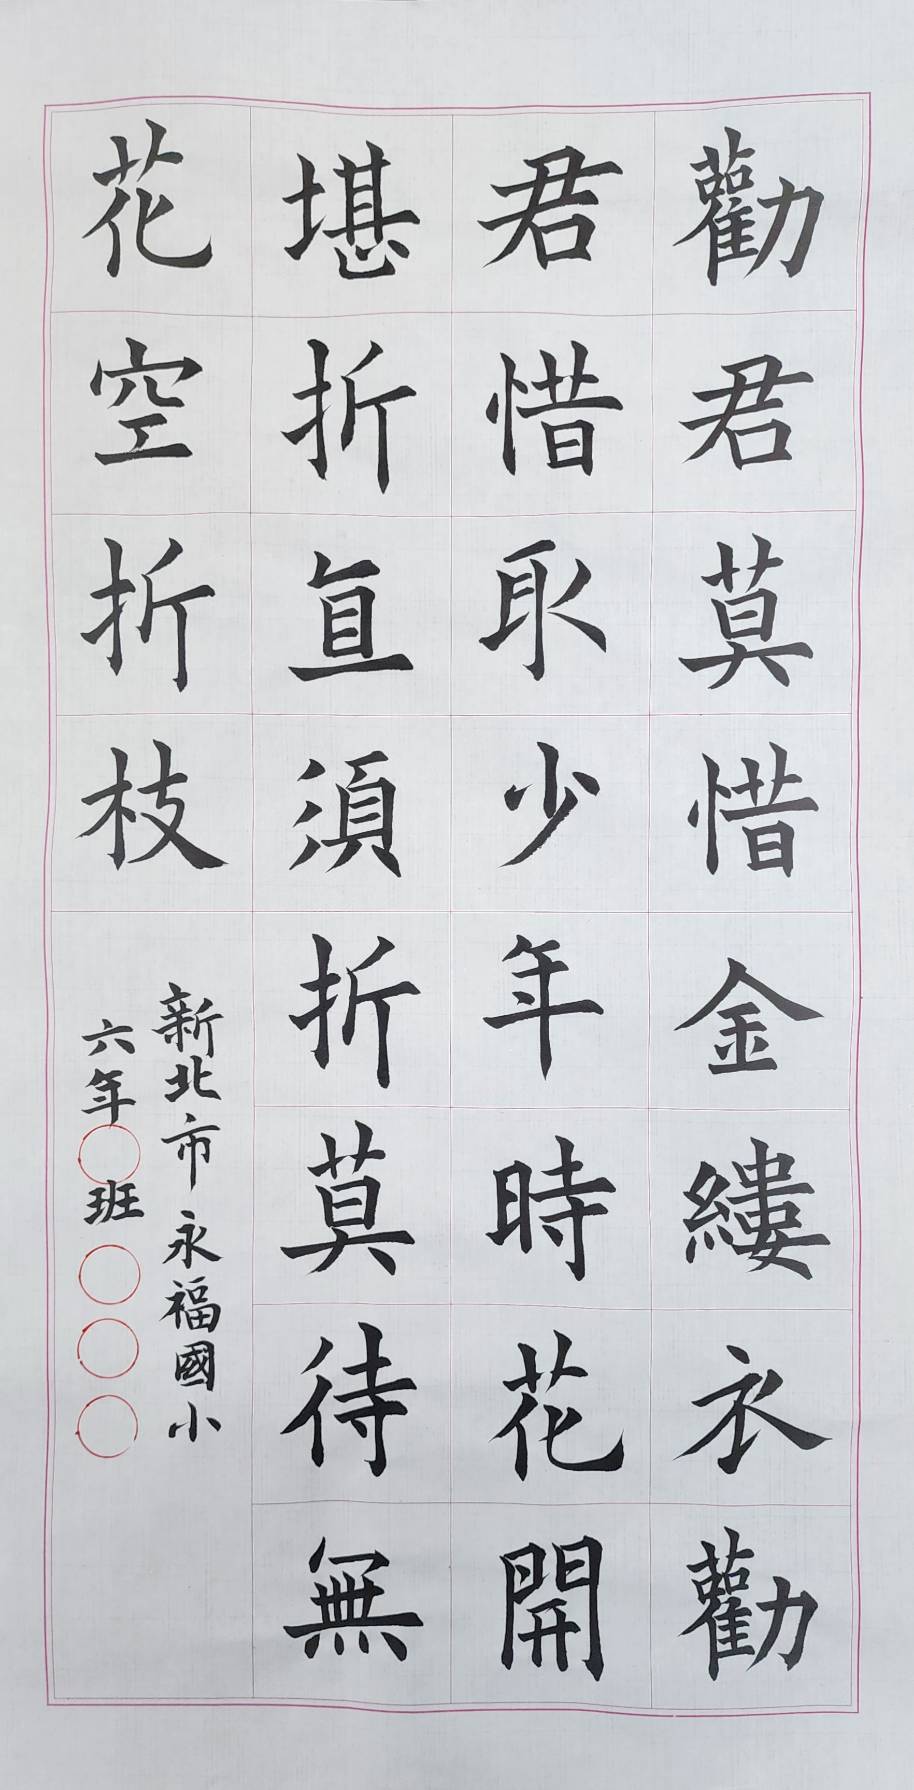 勸君莫惜金縷衣勸
君惜取少年時花開
堪折直須折莫待無
花空折枝
新北市永福國小
六年〇班〇〇〇